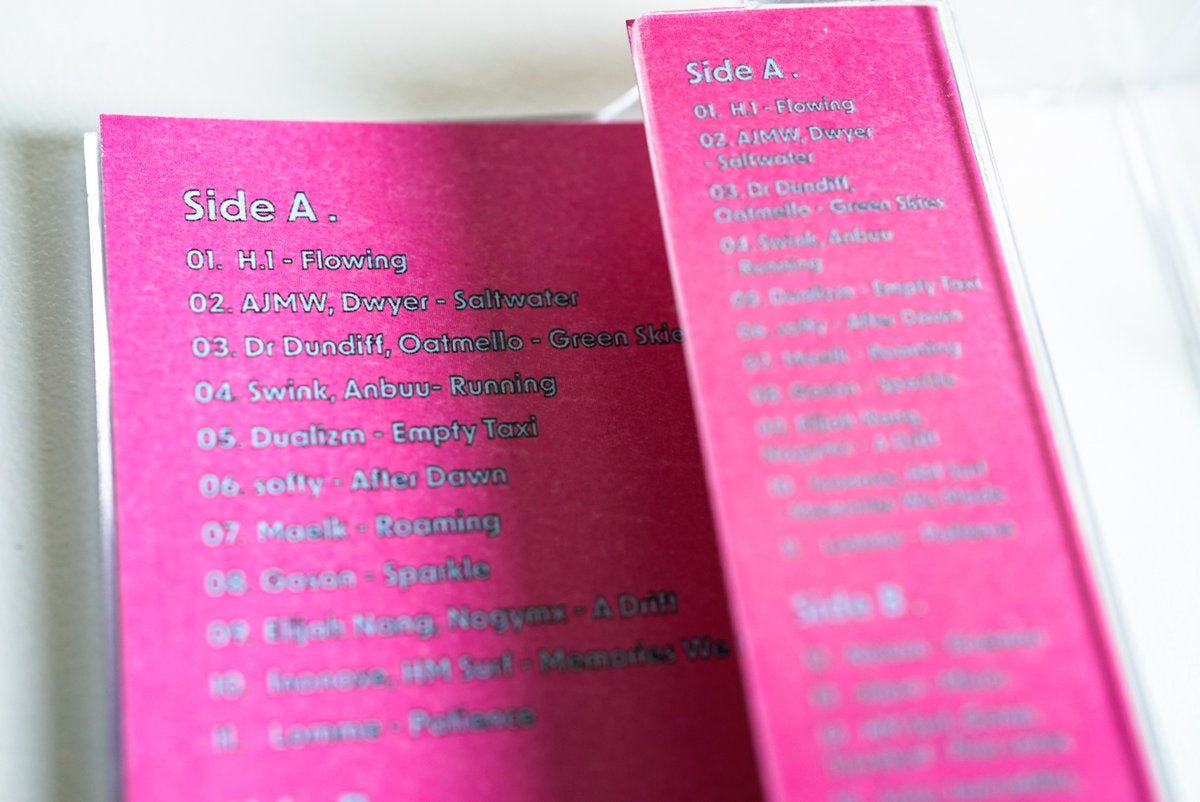 Side A .
01. H.1 - Flowing
02. AJMW, Dwyer - Saltwater
03. Dr Dundiff, Oatmello - Green Skie
04. Swink, Anbuu- Running
05. Dualizm - Empty Taxi
06. softy - After Dawn
07. Maelk - Roaming
08. Goson - Sparkle
09. Elijah Nang, Nogymx - A Drift
10. Inonose, HM Surf - Memories We
11. Lomme - Patience
Side A .
01. H.1 - Flowing
02. AJMW, Dwyer
- Saltwater
03. Dr Dundiff,
Oatmello - Green Skies
04. Swink, Anbuu
- Running
05. Dualizm - Empty Taxi
06. softy - After Dawn
07. Maelk - Roaming
08. Goson - Sparkle
09. Elijah Nang,
Nogymx - A Drift
10. Inonose, HM Surf
- Memories We Made
11. Lomme - Patience
Side B .